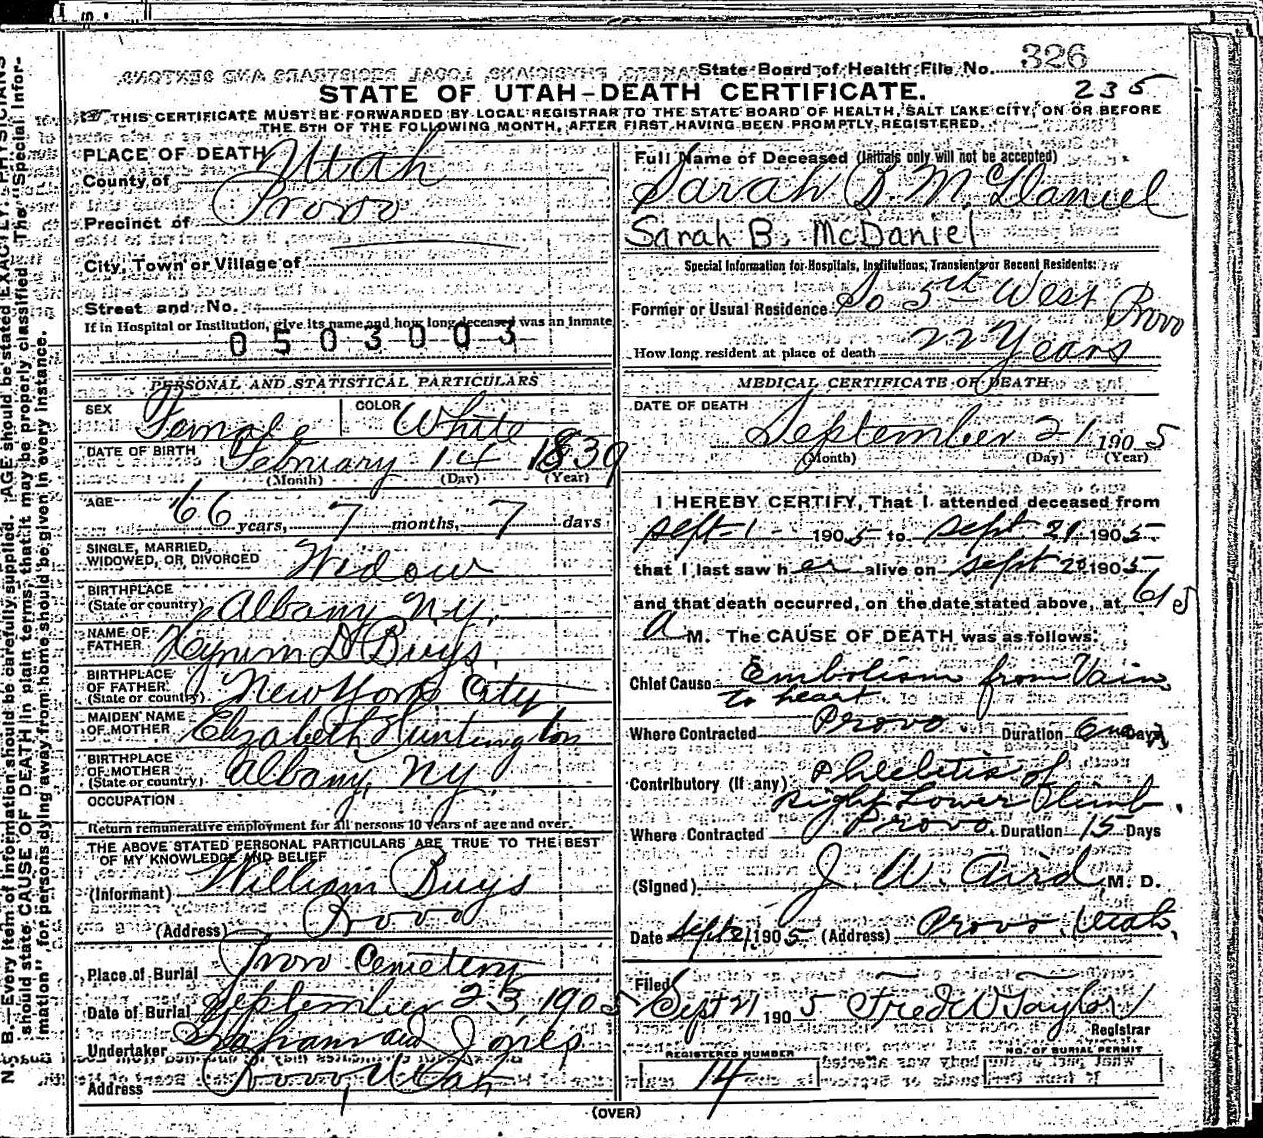 State Board of Health File No. 326
STATE OF UTAH-DEATH CERTIFICATE. 235
THIS CERTIFICATE MUST BE FORWARDED BY LOCAL REGISTRAR TO THE STATE BOARD OF HEALTH, SALT LAKE CITY, ON OR BEFORE
THE 5TH OF THE FOLLOWING MONTH, AFTER FIRST HAVING BEEN PROMPTLY REGISTERED.
PLACE OF DEATH
County of Utah
Precinct of Provo
City, Town or Village of
Street and No.
If in Hospital or Institution, give its name and how long deceased was an inmate
0503003
PERSONAL AND STATISTICAL PARTICULARS
SEX Female COLOR White
DATE OF BIRTH February 14 1839
(Month) (Day) (Year)
AGE 66 years, 7 months, 7 days
SINGLE, MARRIED,
WIDOWED, OR DIVORCED Widow
BIRTHPLACE
(State or country) Albany, N.Y.
NAME OF
FATHER Hyrum D Buys
BIRTHPLACE
OF FATHER
(State or country) New York City
MAIDEN NAME
OF MOTHER Elizabeth Huntington
BIRTHPLACE
OF MOTHER
(State or country) Albany, N.Y.
OCCUPATION
Return remunerative employment for all persons 10 years of age and over.
THE ABOVE STATED PERSONAL PARTICULARS ARE TRUE TO THE BEST
OF MY KNOWLEDGE AND BELIEF
(Informant) William Buys
(Address) Provo
Place of Burial Provo Cemetery
Date of Burial September 23, 1905
Undertaker Graham and Jones
Address Provo, Utah
Full Name of Deceased (Initials only will not be accepted)
Sarah B. McDaniel
Sarah B. McDaniel
Special Information for Hospitals, Institutions, Transients or Recent Residents:
Former or Usual Residence So 5th West Provo
How long resident at place of death 22 Years
MEDICAL CERTIFICATE OF DEATH
DATE OF DEATH
September 21 1905
(Month) (Day) (Year)
I HEREBY CERTIFY, That I attended deceased from
Sept-1- 1905 to Sept. 21 1905
that I last saw her alive on Sept 20 1905
and that death occurred, on the date stated above, at 615
A M. The CAUSE OF DEATH was as follows:
Chief Cause Embolism from Vain
to heart
Where Contracted Provo. Duration Days
Contributory (if any) Phlebitis of
Right Lower limb.
Where Contracted Provo. Duration 15 Days
(Signed) J. W. Aird, M. D.
Date Sept 21, 1905 (Address) Provo, Utah.
Filed
Sept 21 1905 Fred W Taylor
Registrar
REGISTERED NUMBER
14
NO. OF BURIAL PERMIT
(OVER)
N. B.—Every item of information should be carefully supplied. AGE should be stated EXACTLY. PHYSICIANS
should state CAUSE OF DEATH in plain terms, that it may be properly classified. The "Special Infor-
mation" for persons dying away from home should be given in every instance.